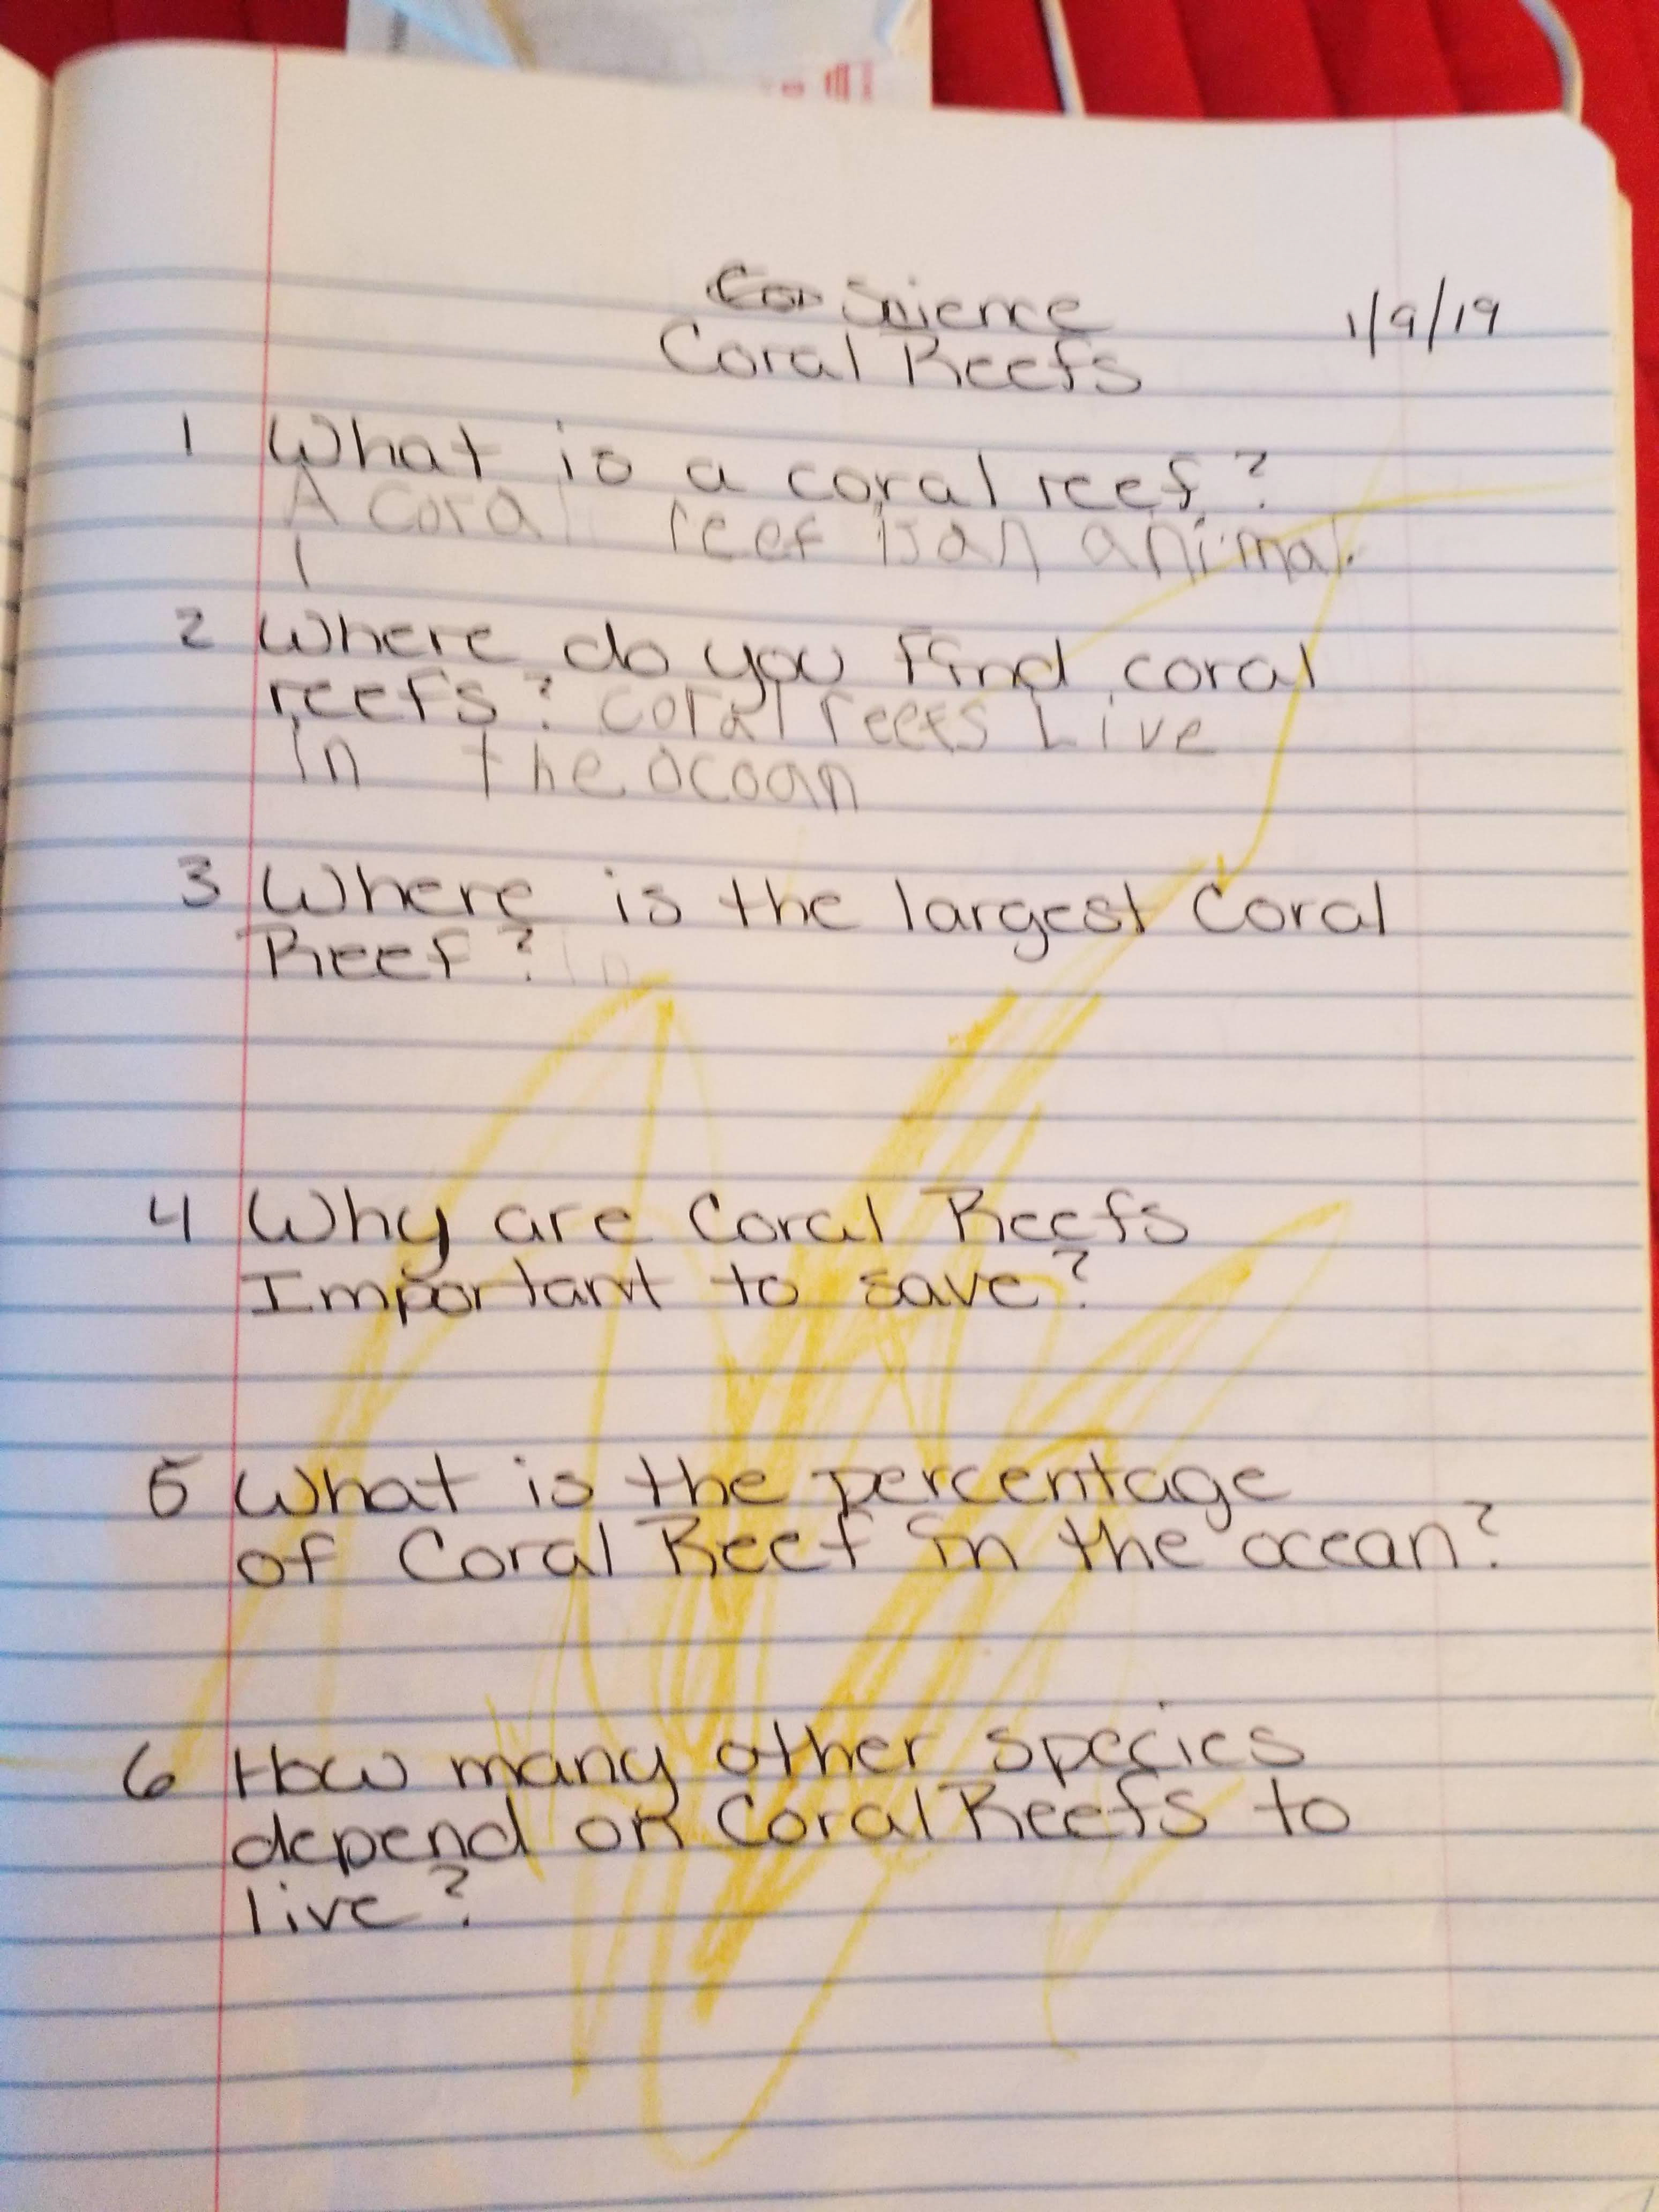 Science
1/9/19
Coral Reefs
1 What is a coral reef?
A coral reef is an animal.
2 Where do you find coral
reefs? coral reefs Live
in the ocoan
3 Where is the largest Coral
Reef? In
4 Why are Coral Reefs
Important to save?
5 What is the percentage
of Coral Reef in the ocean?
6 How many other species
depend on Coral Reefs to
live?